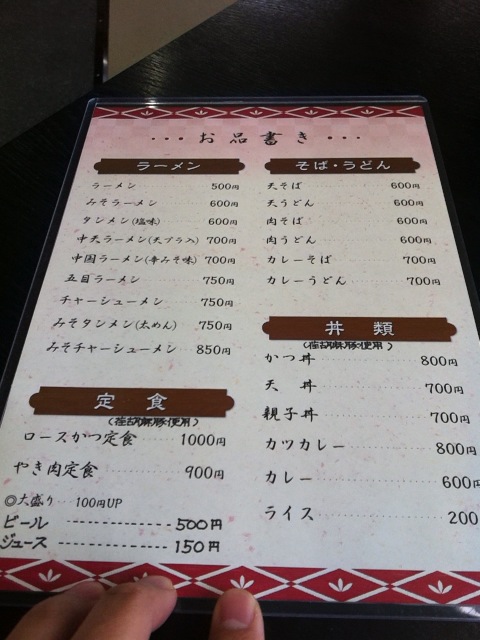 ・・・お品書き・・・
ラーメン
ラーメン 500円
みそラーメン 600円
タンメン(塩味) 600円
中天ラーメン(天プラ入) 700円
中国ラーメン(辛みそ味) 700円
五目ラーメン 750円
チャーシューメン 750円
みそタンメン(太めん) 750円
みそチャーシューメン 850円
定食
(荏胡麻豚使用)
ロースかつ定食 1000円
やき肉定食 900円
◎大盛り 100円UP
ビール 500円
ジュース 150円
そば・うどん
天そば 600円
天うどん 600円
肉そば 600円
肉うどん 600円
カレーそば 700円
カレーうどん 700円
丼類
(荏胡麻豚使用)
かつ丼 800円
天丼 700円
親子丼 700円
カツカレー 800円
カレー 600円
ライス 200